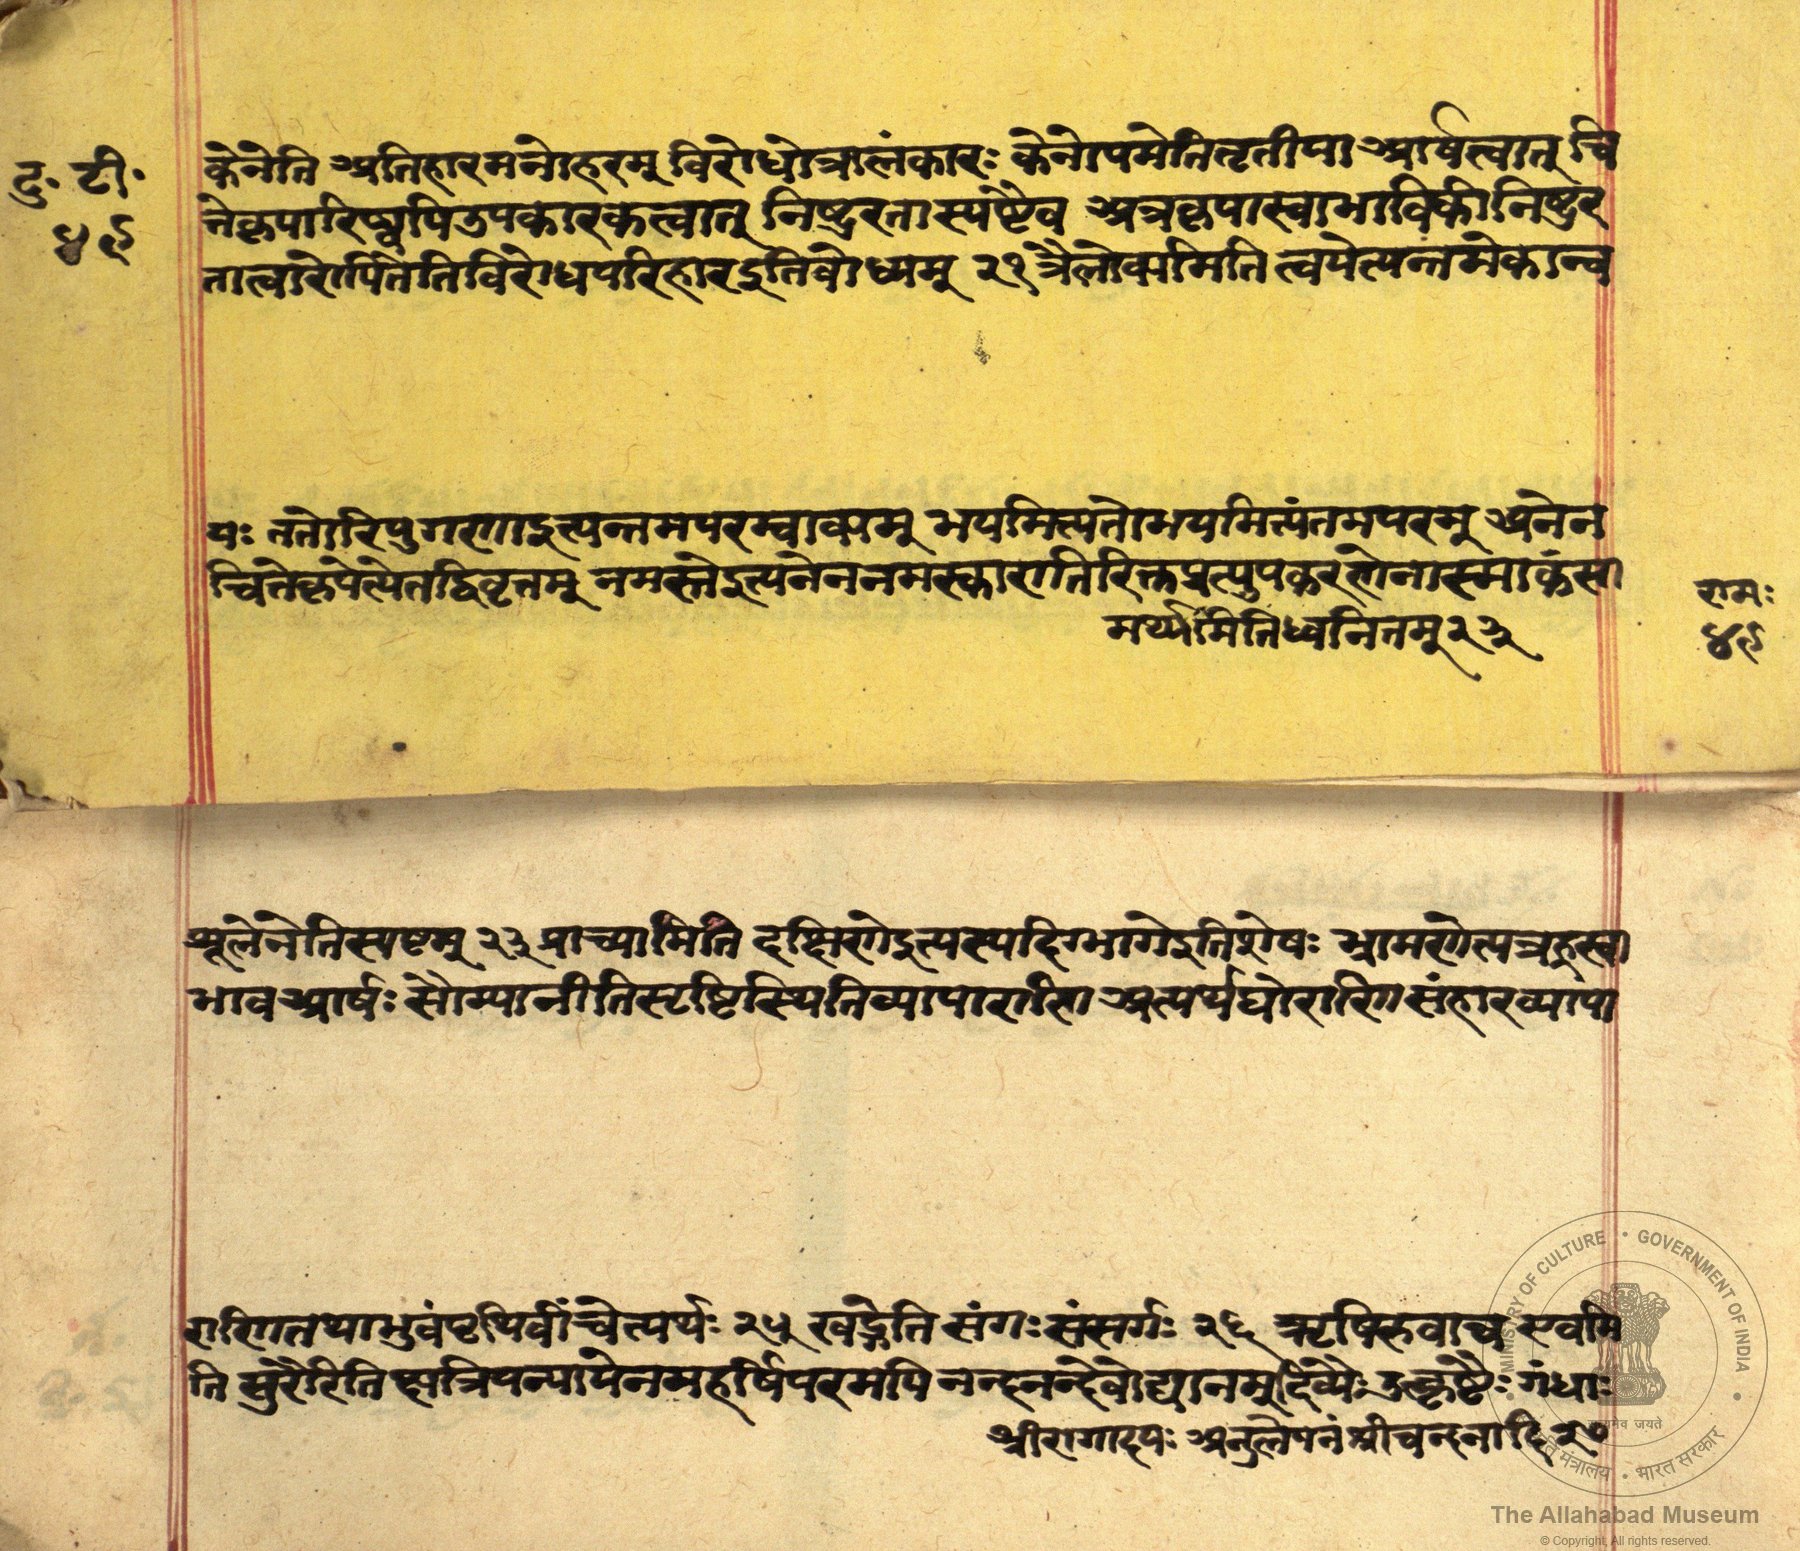 दु· टी·
४९
केनेति अतिहारमनोहरम् विरोधोत्रालंकारः केनोपमेतितृतीया आर्षत्वात् चि
त्तेकृपारिष्वपिउपकारकत्वात् निष्ठुरतास्पष्टैव अत्रकृपास्वाभाविकी निष्ठुर
तात्वारोपितेतिविरोधपरिहारइतिबोध्यम् २१ त्रैलोक्यमिति त्वयेत्यन्तमेकान्व
यः ततोरिपुगणाइत्यन्तमपरम्वाक्यम् भयमित्यतोभयमित्यंतमपरम् अनेन
चित्तेकृपेत्येतद्विवृत्तम् नमस्तेइत्यनेननमस्कारातिरिक्तप्रत्युपकरणेनास्माकंसा
मर्थ्यमितिध्वनितम् २३
रामः
४९
शूलेनेतिस्पष्टम् २३ प्राच्यामिति दक्षिणेइत्यस्यदिग्भागेइतिशेषः भ्रामणेत्यत्रह्रस्वा
भावआर्षः सौम्यानीतिसृष्टिस्थितिव्यापाराणि अत्यर्थघोराणिसंहारव्यापा
राणितथाभुवंपृथिवींचेत्यर्थः २५ खड्गेति संगः संसर्गः २६ ऋषिरुवाच एवमि
ति सुरैरितिक्षत्रियन्यायेनमहर्षिपरमपि नन्दनन्देवोद्यानम् दिव्यैः उत्कृष्टैः गंधाः
श्रीरागादयः अनुलेपनंश्रीचन्दनादि २७
MINISTRY OF CULTURE • GOVERNMENT OF INDIA •
सत्यमेव जयते
संस्कृति मंत्रालय • भारत सरकार
The Allahabad Museum
© Copyright, All rights reserved.